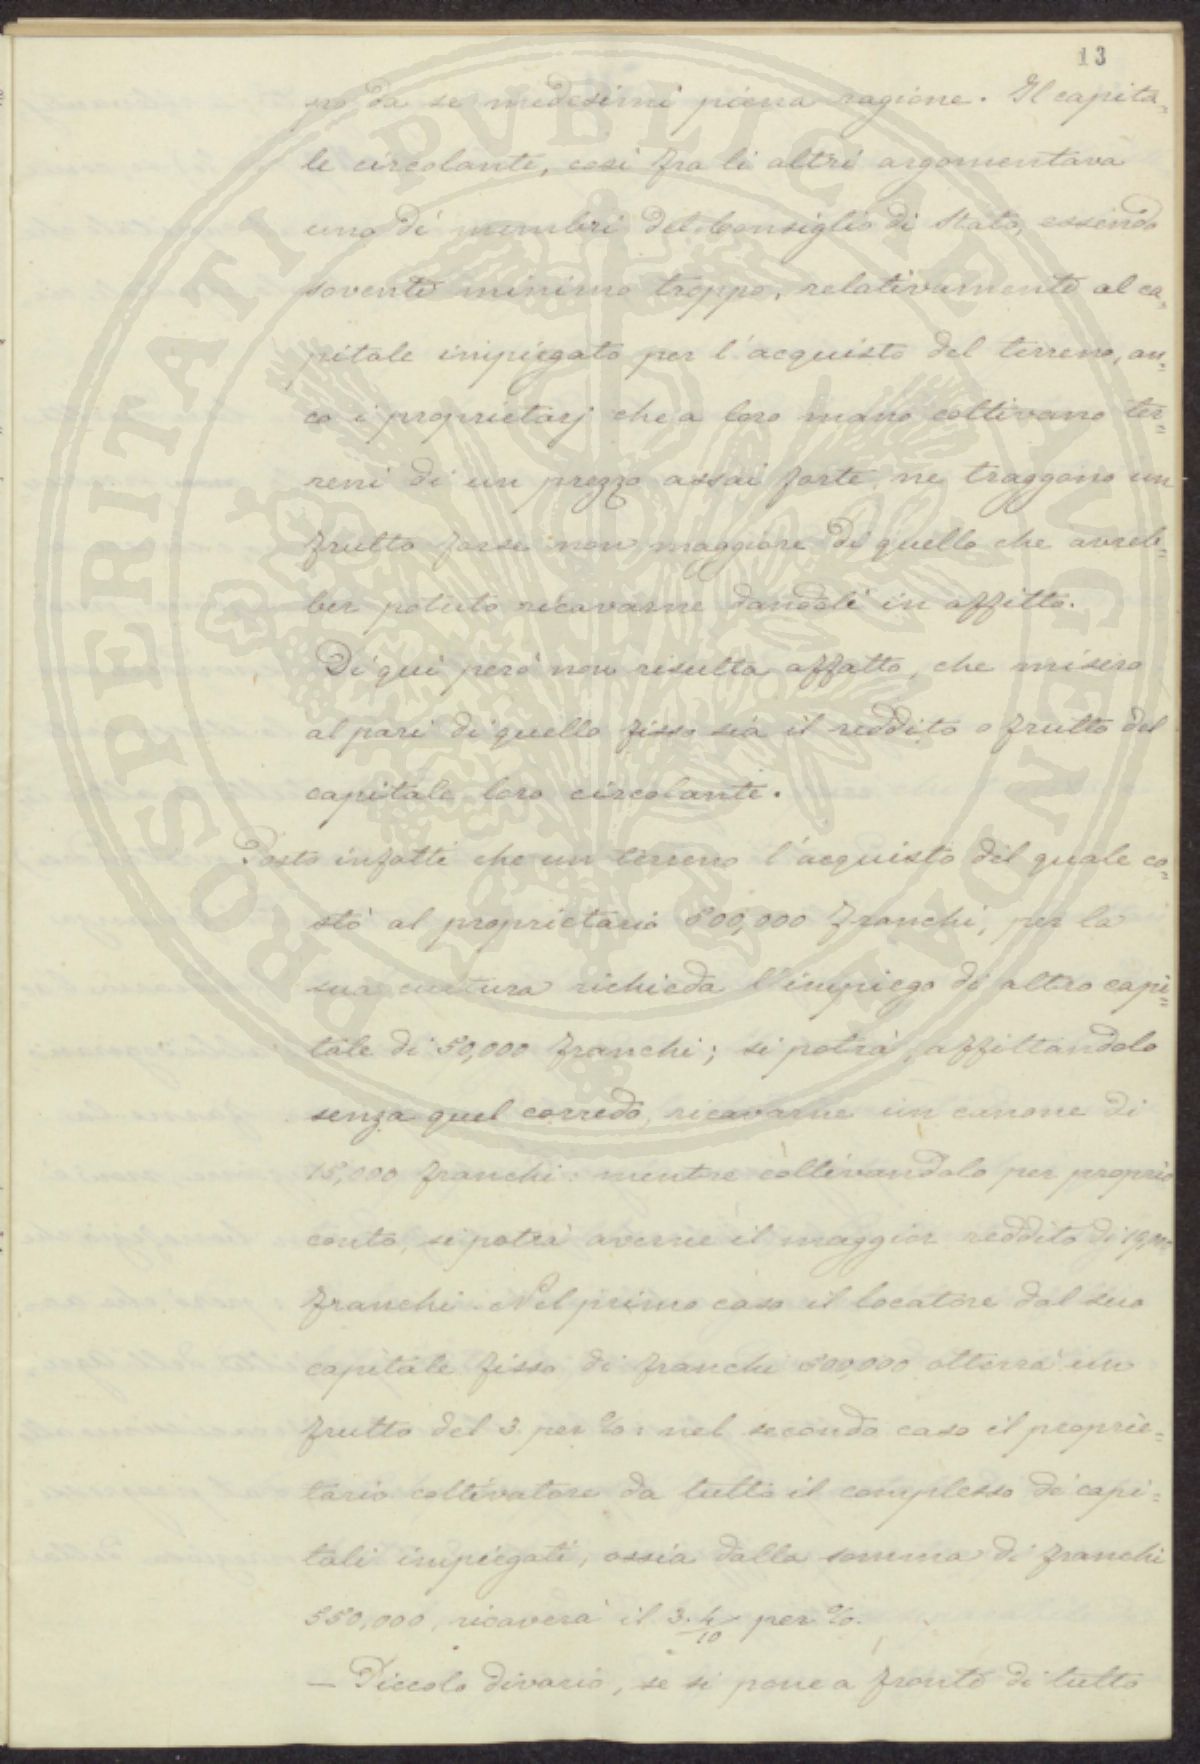 13
no da se medesimi piena ragione. Il capita=
le circolante, così fra li altri argomentava
uno dei membri del Consiglio di Stato, essendo
sovente minimo troppo, relativamente al ca=
pitale impiegato per l'acquisto del terreno, an=
co i proprietarj che a loro mano coltivano ter=
reni di un prezzo assai forte, ne traggono un
frutto forse non maggiore di quello che avreb=
ber potuto ricavarne dandoli in affitto.
Di qui però non risulta affatto, che misero
al pari di quello fisso sia il reddito o frutto del
capitale loro circolante.
Posto infatti che un terreno l'acquisto del quale co=
stò al proprietario 500,000 franchi, per la
sua cultura richieda l'impiego di altro capi=
tale di 50,000 franchi; si potrà, affittandolo
senza quel corredo, ricavarne un canone di
15,000 franchi: mentre coltivandolo per proprio
conto, si potrà averne il maggior reddito di 19,000
franchi. Nel primo caso il locatore dal suo
capitale fisso di franchi 500,000 otterrà un
frutto del 3. per %: nel secondo caso il proprie=
tario coltivatore da tutto il complesso di capi=
tali impiegati, ossia dalla somma di franchi
550,000, ricaverà il 3. 4/10 per %.
— Piccolo divario, se si pone a fronte di tutto
PROSPERITATI PVBLICAE AVGENDAE